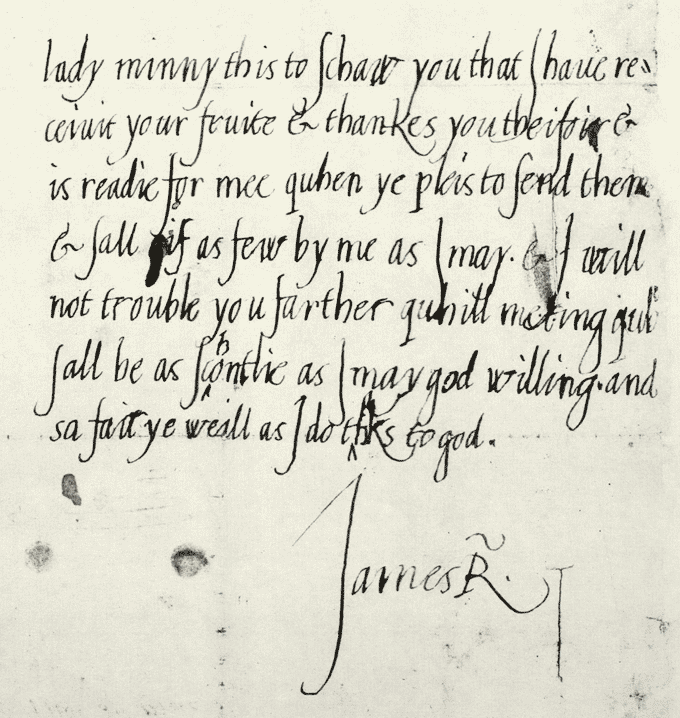 lady minny this to schaw you that I haue re-
ceiuit your fruite & thankes you theirfoir &
is readie for mee quhen ye pleis to send them
& sall gif as few by me as I may. & I will
not trouble you farther quhill meting quhilk
sall be as schortlie as I may god willing. and
sa fair ye weill as I do thks to god.
James R.